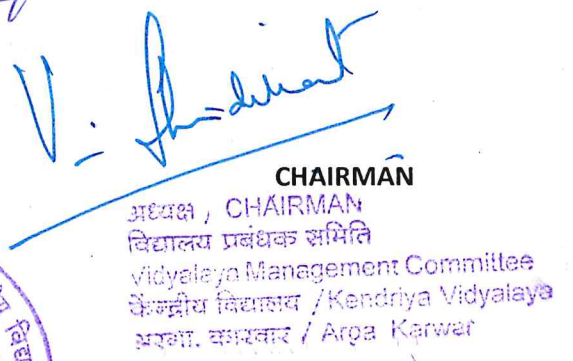 CHAIRMAN
अध्यक्ष, CHAIRMAN
विद्यालय प्रबंधक समिति
Vidyalaya Management Committee
केन्द्रीय विद्यालय / Kendriya Vidyalaya
अरगा, कारवार / Arga Karwar